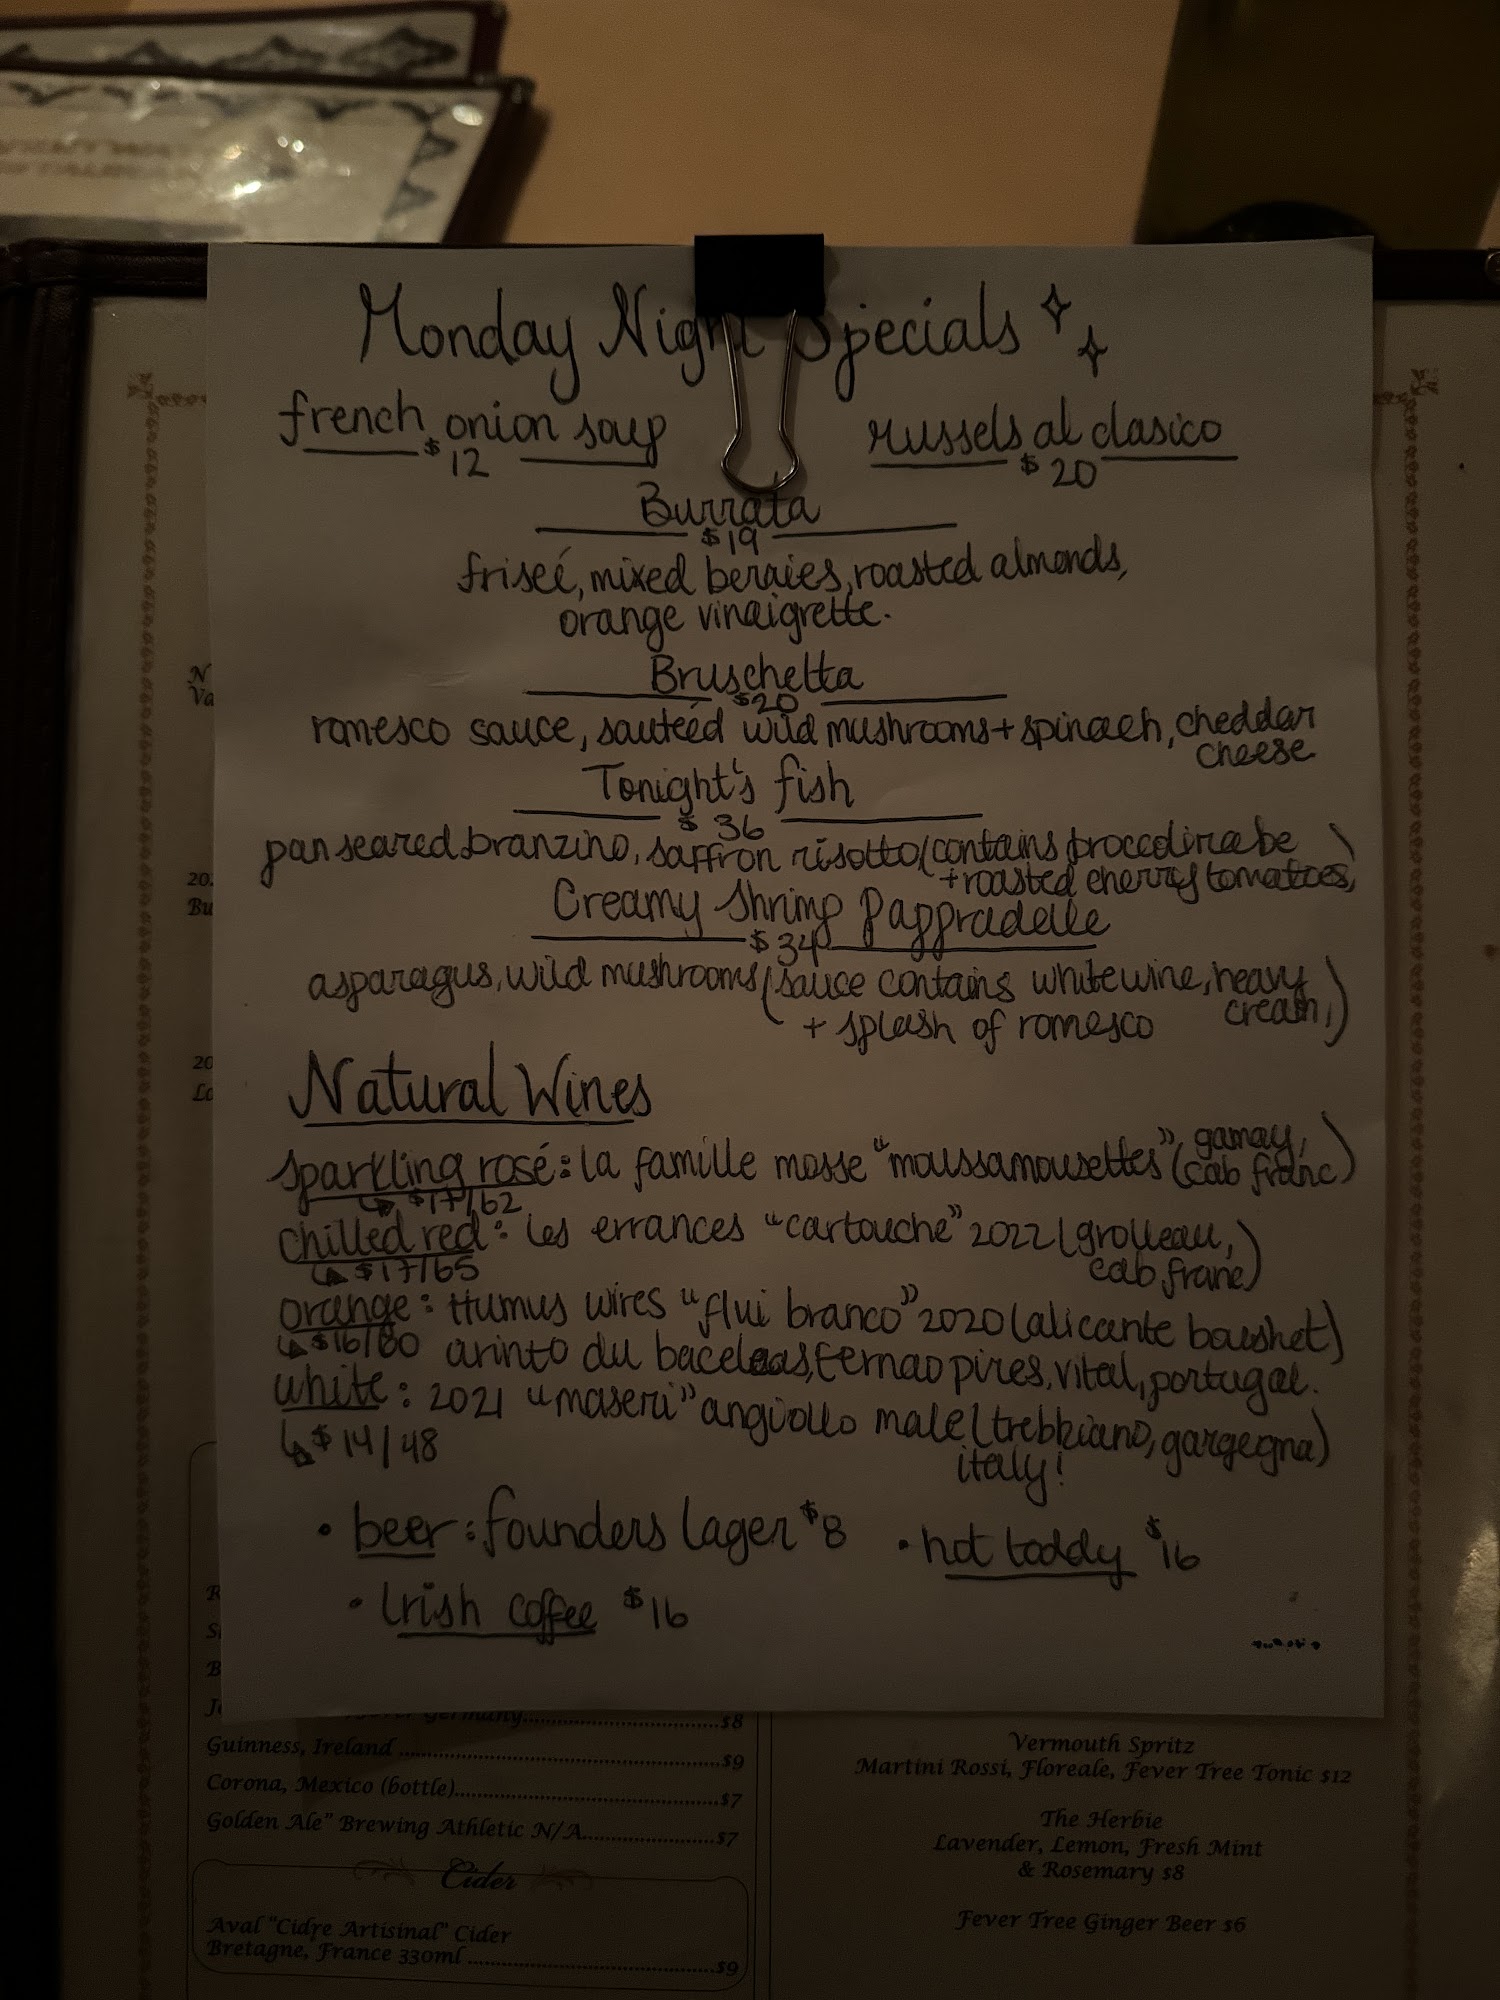 Monday Night Specials
french onion soup
$12
russels al clasico
$20
Burrata
$19
friseé, mixed berries, roasted almonds,
orange vinaigrette.
Bruschetta
$20
romesco sauce, sauteéd wild mushrooms + spinach, cheddar
cheese
Tonight's fish
$36
pan seared branzino, saffron risotto (contains broccoli rabe
+ roasted cherry tomatoes,)
Creamy Shrimp Pappradelle
$34
asparagus, wild mushrooms (sauce contains white wine, heavy
cream,
+ splash of romesco)
Natural Wines
sparkling rosé: la famille mosse "moussamousettes" (gamay,
cab franc)
↳ $17/62
chilled red: les errances "cartouche" 2022 (grolleau,
cab franc)
↳ $17/65
orange: Humus wires "flui branco" 2020 (alicante boushet)
↳ $16/60 arinto du baceloas, fernao pires, vital, portugal.
white: 2021 "maseri" angiollo male (trebbiano, gargegna)
↳ $14/48
italy!
• beer: founders lager $8
• hot toddy $16
• Irish coffee $16
N
Va
20
Bu
20
Lo
R
S
B
J
Germany $8
Guinness, Ireland $9
Corona, Mexico (bottle) $7
Golden Ale" Brewing Athletic N/A $7
Cider
Aval "Cidre Artisinal" Cider
Bretagne, France 330ml $9
Vermouth Spritz
Martini Rossi, Floreale, Fever Tree Tonic $12
The Herbie
Lavender, Lemon, Fresh Mint
& Rosemary $8
Fever Tree Ginger Beer $6